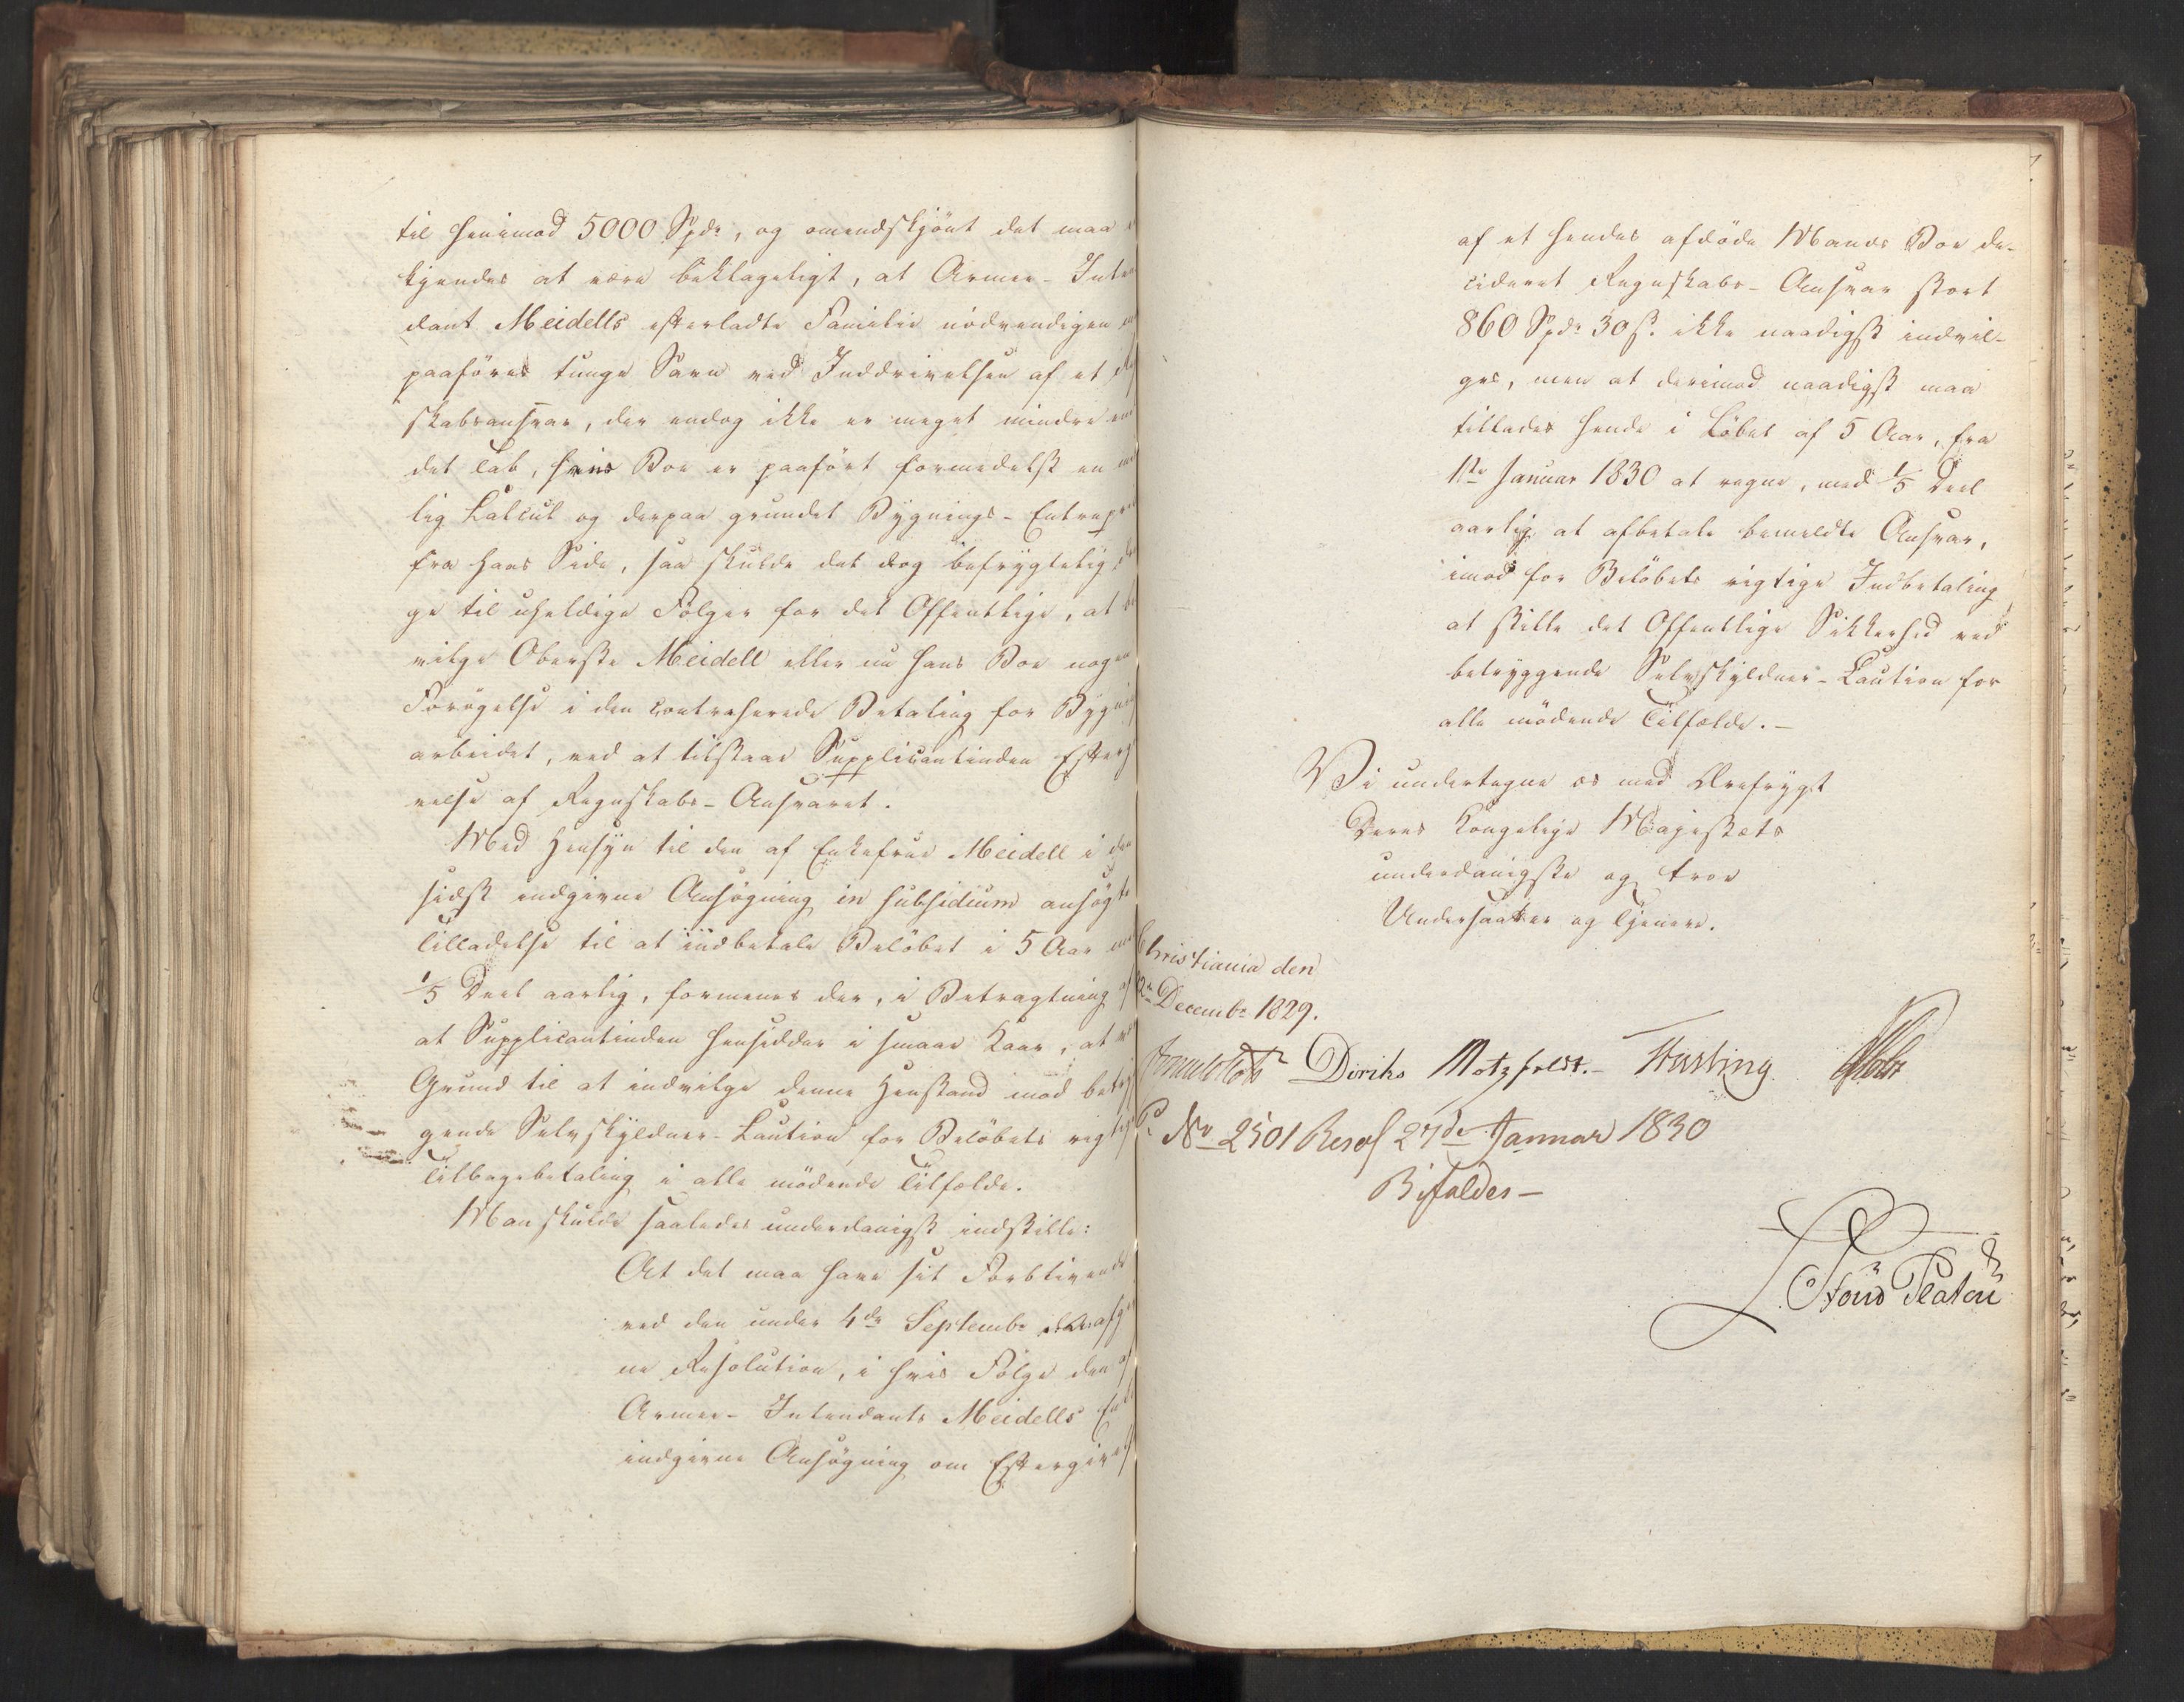 til henimod 5000 Spdr, og omendskjönt det maa
kjendes at være beklageligt, at Armee-Inten
dant Meidells efterladte Familie nödvendigen
paaföres tunge Savn ved Inddrivelsen af et
skabsansvar, der endog ikke er meget mindre end
det Tab, hans Boe er paafört formedelst en
lig Calcul og derpaa grundet Bygnings-Entrepri
fra hans Side, saa skulde det dog befrygtelig
ge til uheldige Fölger for det Offentlige, at be
vilge Oberste Meidell eller nu hans Boe nogen
Forögelse i den contraherede Betaling for Bygnings
arbeidet, ved at tilstaae Supplicantinden Efterg
velse af Regnskabs-Ansvaret.
Med Hensyn til den af Enkefrue Meidell i den
sidst indgivne Ansögning in subsidium ansögte
Tilladelse til at indbetale Belöbet i 5 Aar med
1/5 Deel aarlig, formenes der, i Betragtning af
at Supplicantinden hensidder i smaae Kaar, at
Grund til at indvilge denne Henstand mod betryg
gende Selvskyldner-Caution for Belöbets rigtige
Tilbagebetaling i alle mödende Tilfælde.
Man skulde saaledes underdanigst indstille:
At det maa have sit Forblivende
ved den under 4de Septembr afgiv
ne Resolution, i hvis Fölge den af
Armee-Intendants Meidells Enke
indgivne Ansögning om Eftergivelse
af et hendes afdöde Mands Boe de-
cideret Regnskabs-Ansvar stort
860 Spdr 30 s. ikke naadigst indvil-
ges, men at derimod naadigst maa
tillades hende i Löbet af 5 Aar, fra
1ste Januar 1830 at regne, med 1/5 Deel
aarlig at afbetale bemeldte Ansvar,
imod for Belöbets rigtige Indbetaling
at stille det Offentlige Sikkerhed ved
betryggende Selvskyldner-Caution for
alle mödende Tilfælde.-
Vi undertegne os med Ærefrygt
Deres Kongelige Majestæts
underdanigste og troe
Undersaatter og Tjenere.
Christiania den
Decembr 1829.
Diriks Motzfeldt.- Fasting Holst
No 2501 Resol 27de Januar 1830
Bifaldes-